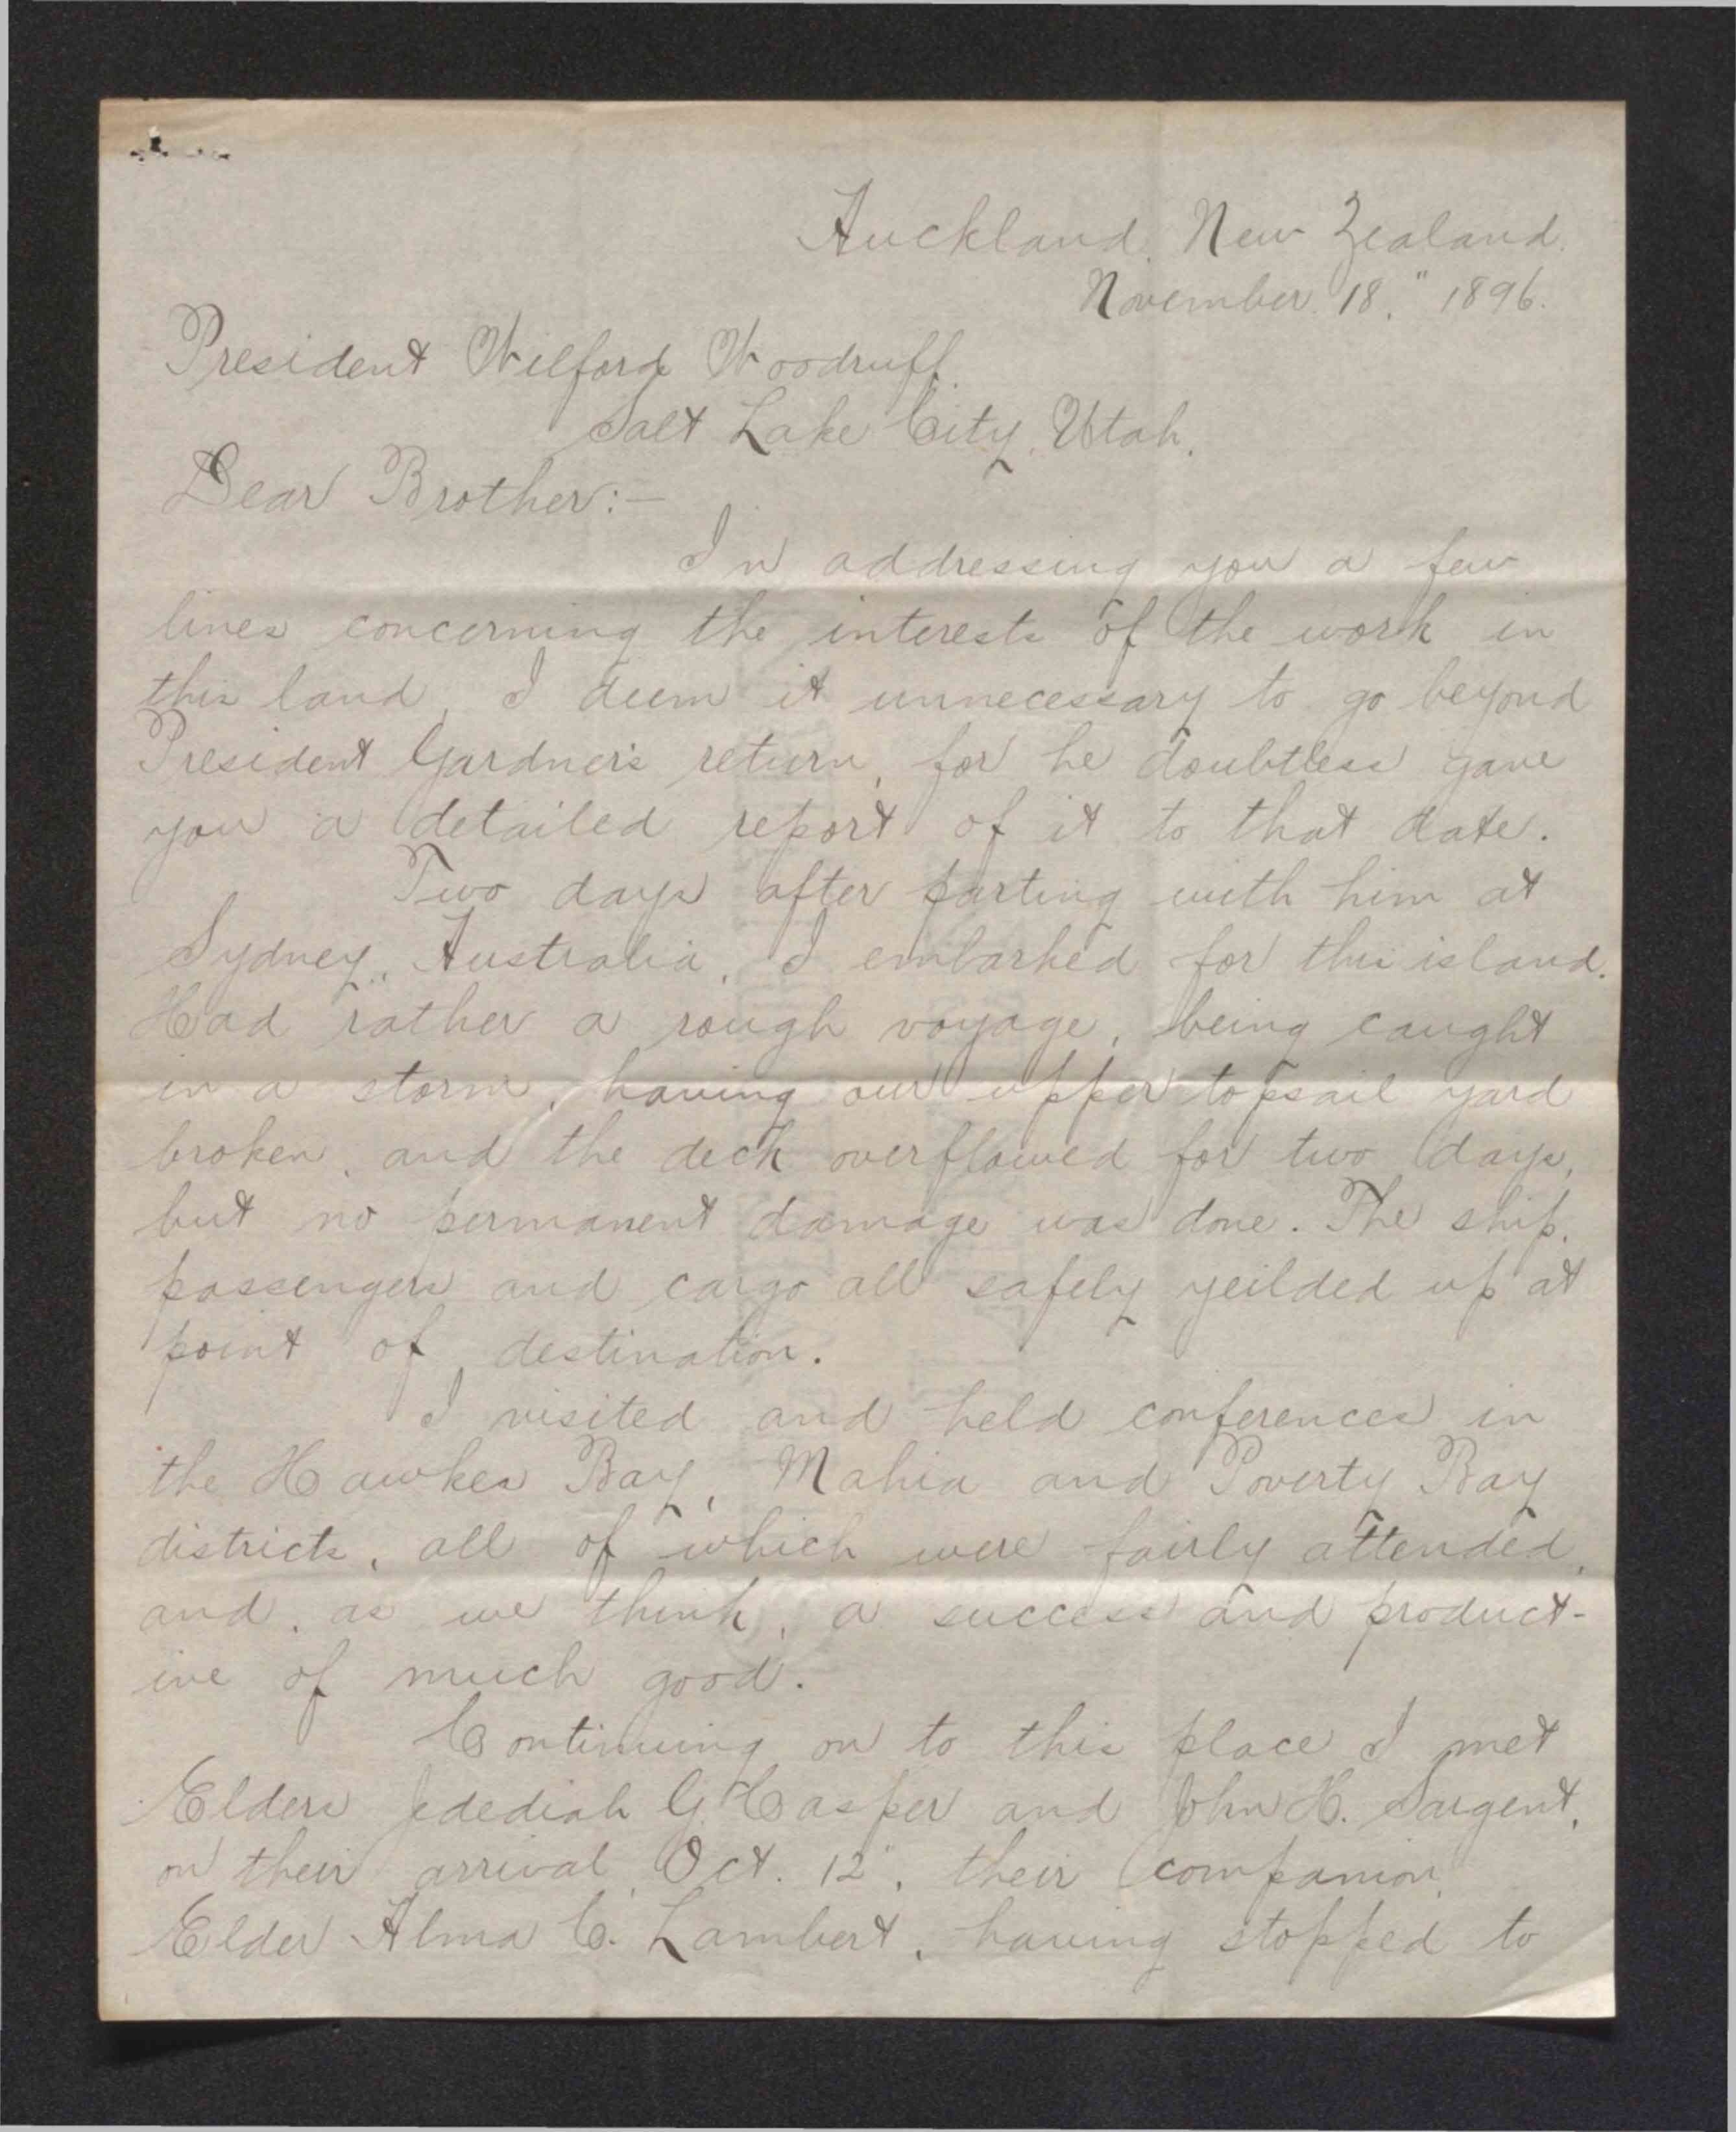 Auckland, New Zealand.
November 18," 1896.
President Wilford Woodruff.
Salt Lake City, Utah.
Dear Brother:—
In addressing you a few
lines concerning the interests of the work in
this land, I deem it unnecessary to go beyond
President Gardner's return, for he doubtless gave
you a detailed report of it to that date.
Two days after parting with him at
Sydney, Australia, I embarked for this island.
Had rather a rough voyage, being caught
in a storm, having our upper topsail yard
broken, and the deck overflowed for two days,
but no permanent damage was done. The ship,
passengers and cargo all safely yeilded up at
point of destination.
I visited and held conferences in
the Hawkes Bay, Mahia and Poverty Bay
districts, all of which were fairly attended,
and, as we think, a success and product-
ive of much good.
Continuing on to this place I met
Elders Jedediah G. Casper and John H. Sargent,
on their arrival, Oct. 12", their companion,
Elder Alma C. Lambert, having stopped to